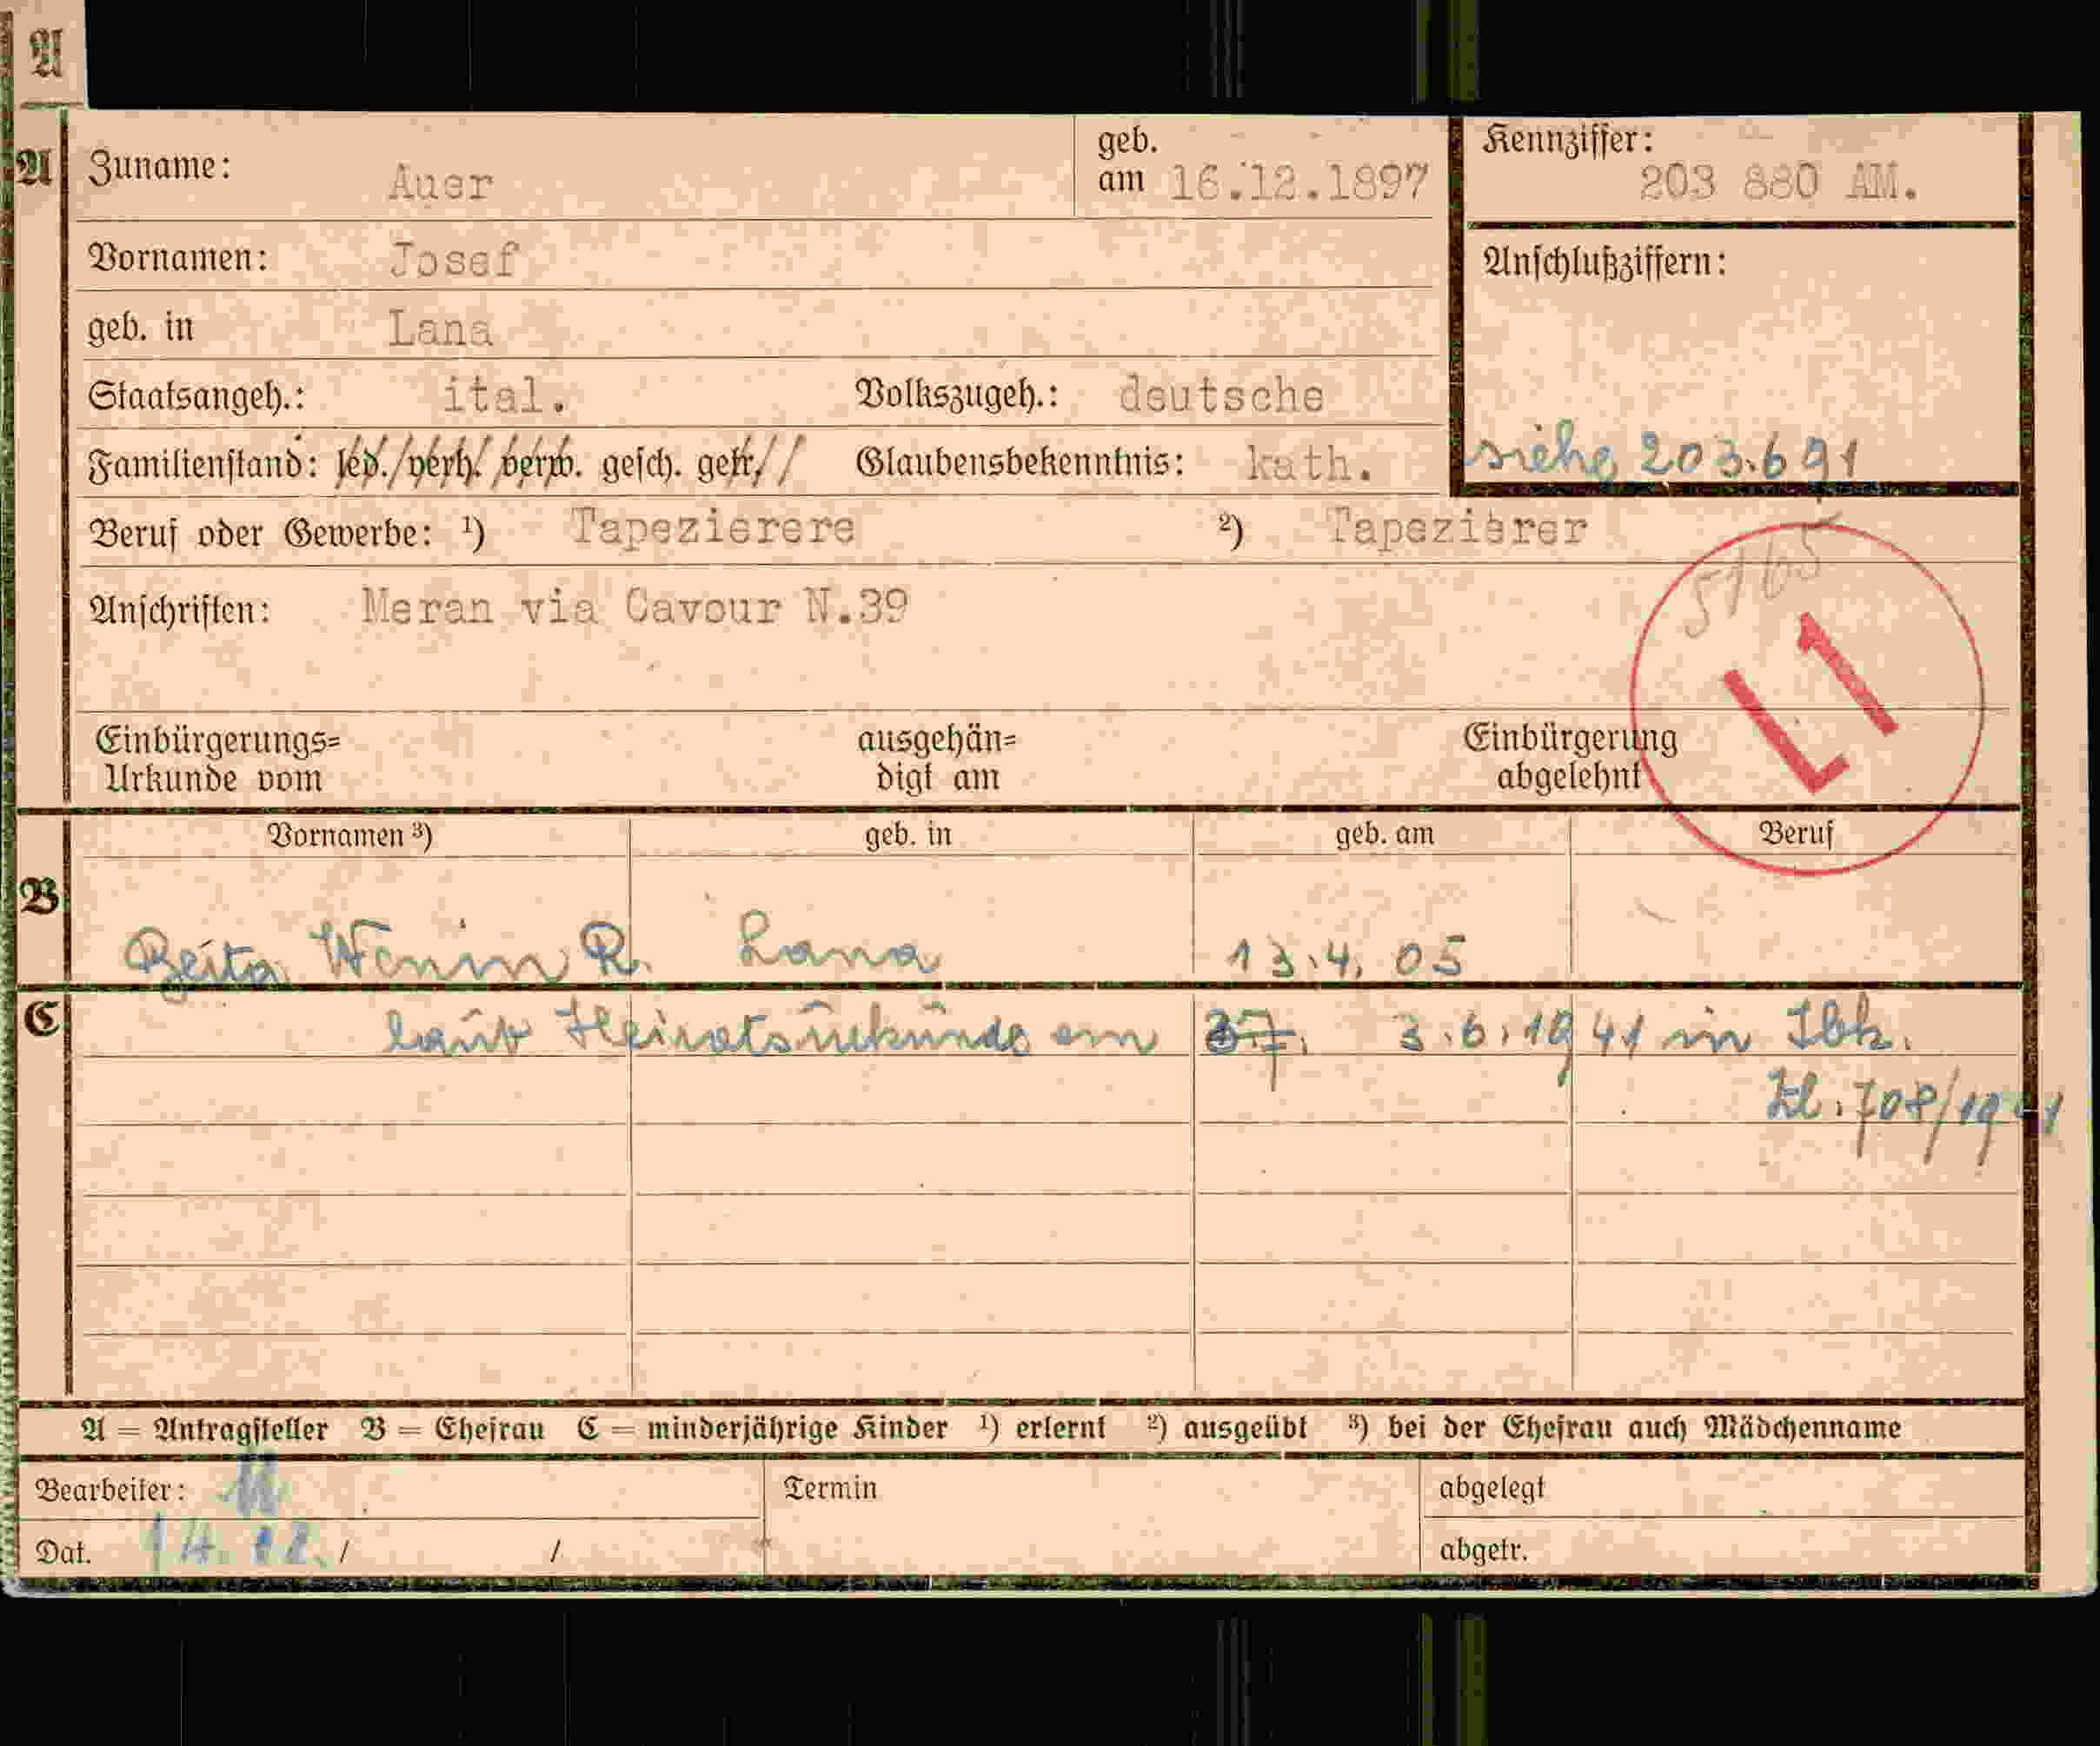 A
A Zuname: Auer geb. am 16.12.1897 Kennziffer: 203 880 AM.
Vornamen: Josef Anschlußziffern:
geb. in Lana
Staatsangeh.: ital. Volkszugeh.: deutsche
siehe 203.691
Familienstand: led./verh./verw. gesch. getr.// Glaubensbekenntnis: kath.
Beruf oder Gewerbe: ¹) Tapezierere ²) Tapezierer
5165
Anschriften: Meran via Cavour N.39
L1
Einbürgerungs= ausgehän= Einbürgerung
Urkunde vom digt am abgelehnt
Vornamen ³) geb. in geb. am Beruf
B
Lana 13.4.05
C laut am 3.6.1941 in Ibk.
Zl. 708/1941
A = Antragsteller B = Ehefrau C = minderjährige Kinder ¹) erlernt ²) ausgeübt ³) bei der Ehefrau auch Mädchenname
Bearbeiter: Termin abgelegt
Dat. 14. 12. / / abgetr.